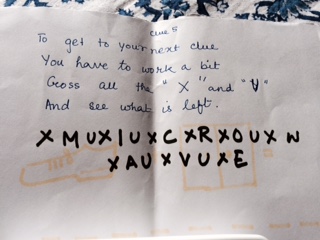 clue 5
To get to your next clue
You have to work a bit
Cross all the "X" and "U"
And see what is left.
X M U X I U X C X R X O U X W
X A U X V U X E